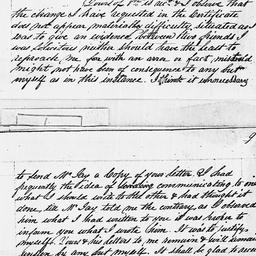 Yours of 1st is recd & I observe that
the change I have requested in the Certificate
does not appear materially difficulty, situated as I
was to give an evidence between two friends I
was solicitous neither should have the least to
reproach me for with an error in fact, mistake
might not have been of consequence to any but
myself as in this instance. I think it unnecessary
9
to send Mr Jay a Copy of your letter. I had
frequently the idea of communicating to one
what I should write to the other & had thought it
done, like Mr Jay told me the contrary, as I observed
him what I had written to you it was proper to
inform you what I wrote him. It was to justify
myself. Yours & his letters to me remain & will remain
unseen by any but myself. It shall be glad to